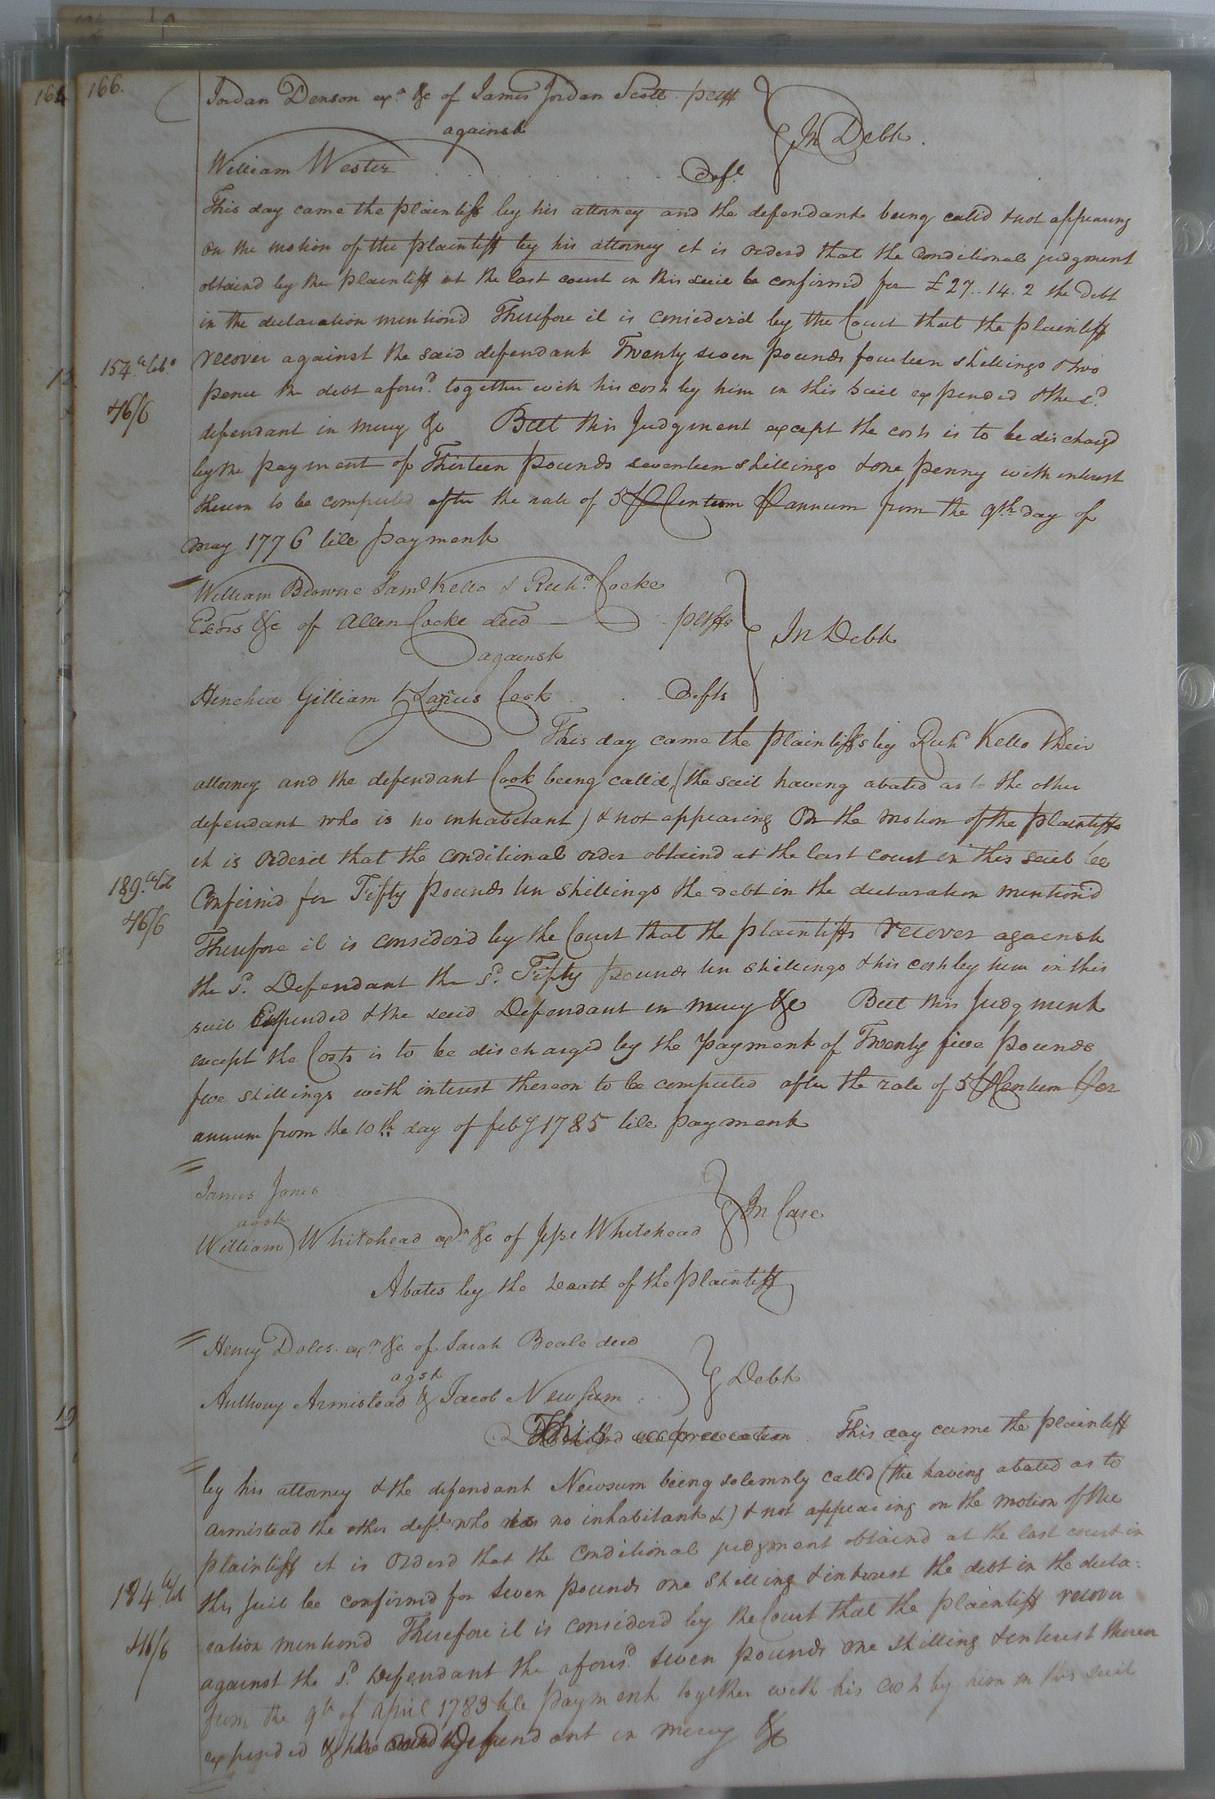 166.
Jordan Denson exr. &c of James Jordan Scott pltff
against
In Debt.
William Wester Deft.
This day came the plaintiff by his attorney and the defendant being calld & not appearing
on the motion of the plaintiff by his attorney it is orderd that the Conditional judgment
obtaind by the plaintiff at the last court in this suit be confirmed for £27..14.2 the debt
in the declaration mentiond Therefore it is considerd by the Court that the plaintiff
recover against the said defendant Twenty seven pounds fourteen shillings & two
pence the debt afores.d together with his costs by him in this suit expended & the s.d
154
46/6
defendant in mercy &c But this Judgment except the costs is to be dischargd
by the payment of Thirteen pounds seventeen shillings & one penny with interest
thereon to be computed after the rate of 5 P Centum P annum from the 9th day of
may 1776 till payment
William Browne Saml Kello & Richd. Cocke
Exors &c of Allen Cocke decd pltffs
In Debt
against
Henchia Gilliam & Lazrus Cook Defts
This day came the plaintiffs by Richd Kello their
attorney and the defendant Cook being calld, (the suit having abated as to the other
defendant who is no inhabitant) & not appearing On the motion of the plaintiffs
it is orderd that the conditional order obtaind at the last court in this suit be
189
46/6
Confirmd for Fifty pounds ten shillings the debt in the declaration mentiond
Therefore it is considerd by the Court that the plaintiffs recover against
the s.d Defendant the s.d Fifty pounds ten shillings & his costs by him in this
suit Expended & the said Defendant in mercy &c But this Judgment
except the Costs is to be discharged by the payment of Twenty five pounds
five shillings with interest thereon to be computed after the rate of 5 P Centum Per
annum from the 10th day of feby 1785 till payment
James Jones
agst
In Case
William Whitehead exr &c of Jesse Whitehead
Abates by the death of the plaintiff
Henry Doles exr &c of Sarah Beale decd
agst
Debt
Anthony Armistead & Jacob Newsum
This day came the plaintiff
by his attorney & the defendant Newsum being solemnly calld (the having abated as to
armistead the other deft. who is no inhabitant &) & not appearing on the motion of the
plaintiff it is Orderd that the Conditional judgment obtaind at the last court in
184
46/6
this suit be confirmed for seven pounds one shilling & interest the debt in the decla:
ration mentiond Therefore it is considerd by the Court that the plaintiff recover
against the s.d Defendant the afores.d seven pounds one shilling & interest thereon
from the 9th of April 1783 till payment together with his costs by him in this suit
expended & the said Defendant in mercy &c